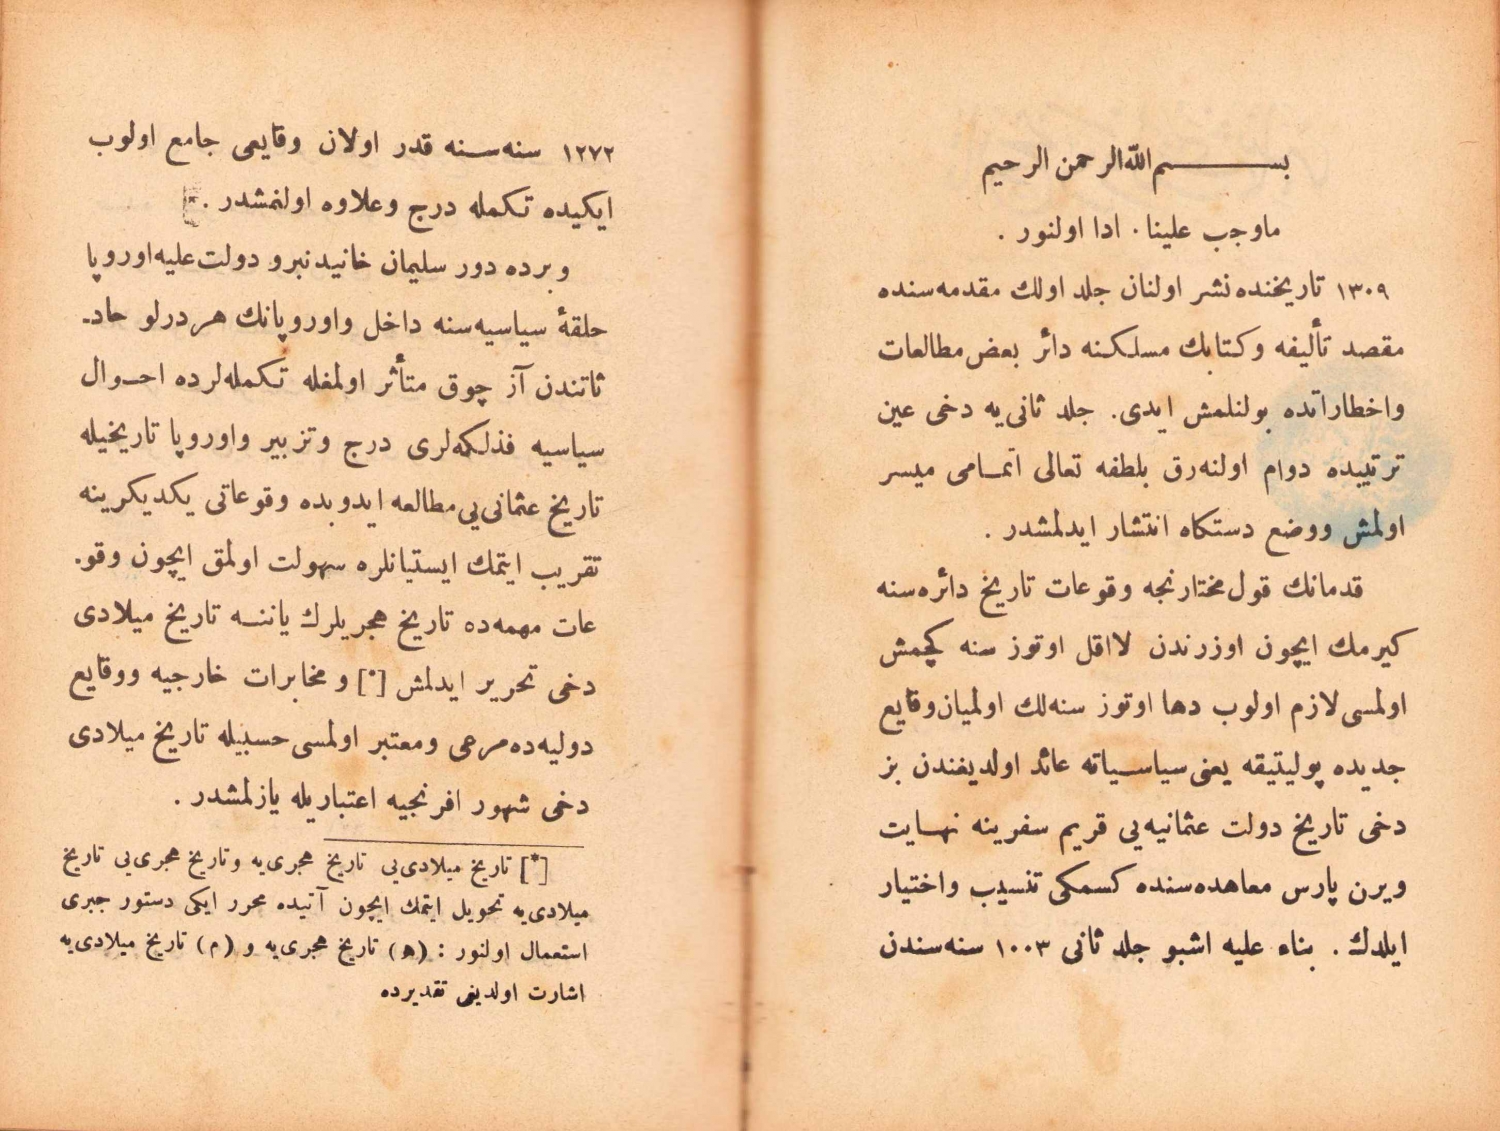 بسم الله الرحمن الرحيم
ماوجب علينا . ادا اولنور .
١٣٠٩ تاريخنده نشر اولنان جلد اولك مقدمه‌سنده
مقصد تأليفه وكتابك مسلكنه دائر بعض مطالعات
واخطاراتده بولنلمش ايدى. جلد ثانى‌يه دخى عين
ترتيبده دوام اولنه‌رق بلطفه تعالى اتمامى ميسر
اولمش ووضع دستكاه انتشار ايدلمشدر .
قدمانك قول مختارنجه وقوعات تاريخ دائره‌سنه
كيرمك ايچون اوزرندن لااقل اوتوز سنه كچمش
اولمسى لازم اولوب دها اوتوز سنه‌لك اولميان وقايع
جديده پوليتيقه يعنى سياسياته عائد اولديغندن بز
دخى تاريخ دولت عثمانيه‌يى قريم سفرينه نهايت
ويرن پارس معاهده‌سنده كسمكى تنسيب واختيار
ايلدك . بناء عليه اشبو جلد ثانى ١٠٠٣ سنه‌سندن
١٢٧٢ سنه‌سنه قدر اولان وقايعى جامع اولوب
ايكيده تكمله درج وعلاوه اولنمشدر .
وبرده دور سليمان خانيدنبرو دولت عليه اوروپا
حلقهٔ سياسيه‌سنه داخل واوروپانك هردرلو حاد-
ثاتندن آز چوق متأثر اولمغله تكمله‌لرده احوال
سياسيه فذلكه‌لرى درج وتزبير واوروپا تاريخيله
تاريخ عثمانى‌يى مطالعه ايدوبده وقوعاتى يكديكرينه
تقريب ايتمك ايستيانلره سهولت اولمق ايچون وقو-
عات مهمه‌ده تاريخ هجريلرك ياننه تاريخ ميلادى
دخى تحرير ايدلمش [*] و مخابرات خارجيه ووقايع
دوليه‌ده مرعى ومعتبر اولمسى حسبيله تاريخ ميلادى
دخى شهور افرنجيه اعتباريله يازلمشدر .
[*] تاريخ ميلادى‌يى تاريخ هجرى‌يه وتاريخ هجرى‌يى تاريخ
ميلادى‌يه تحويل ايتمك ايچون آتيده محرر ايكى دستور جبرى
استعمال اولنور : (ه) تاريخ هجرى‌يه و (م) تاريخ ميلادى‌يه
اشارت اولدينى تقديرده